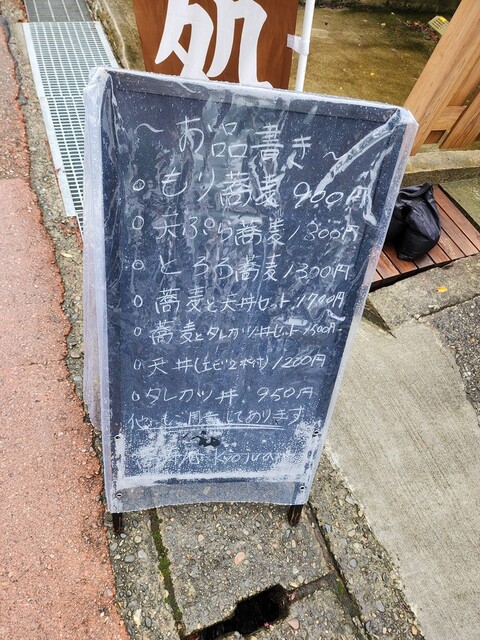 処
～お品書き～
○もり蕎麦 900円
○天ぷら蕎麦 1800円
○とろろ蕎麦 1300円
○蕎麦と天丼セット 1700円～
○蕎麦とタレカツ丼セット 1500円～
○天丼(エビ2本付) 1200円
○タレカツ丼 950円
他にもご用意してあります
Kyojuro